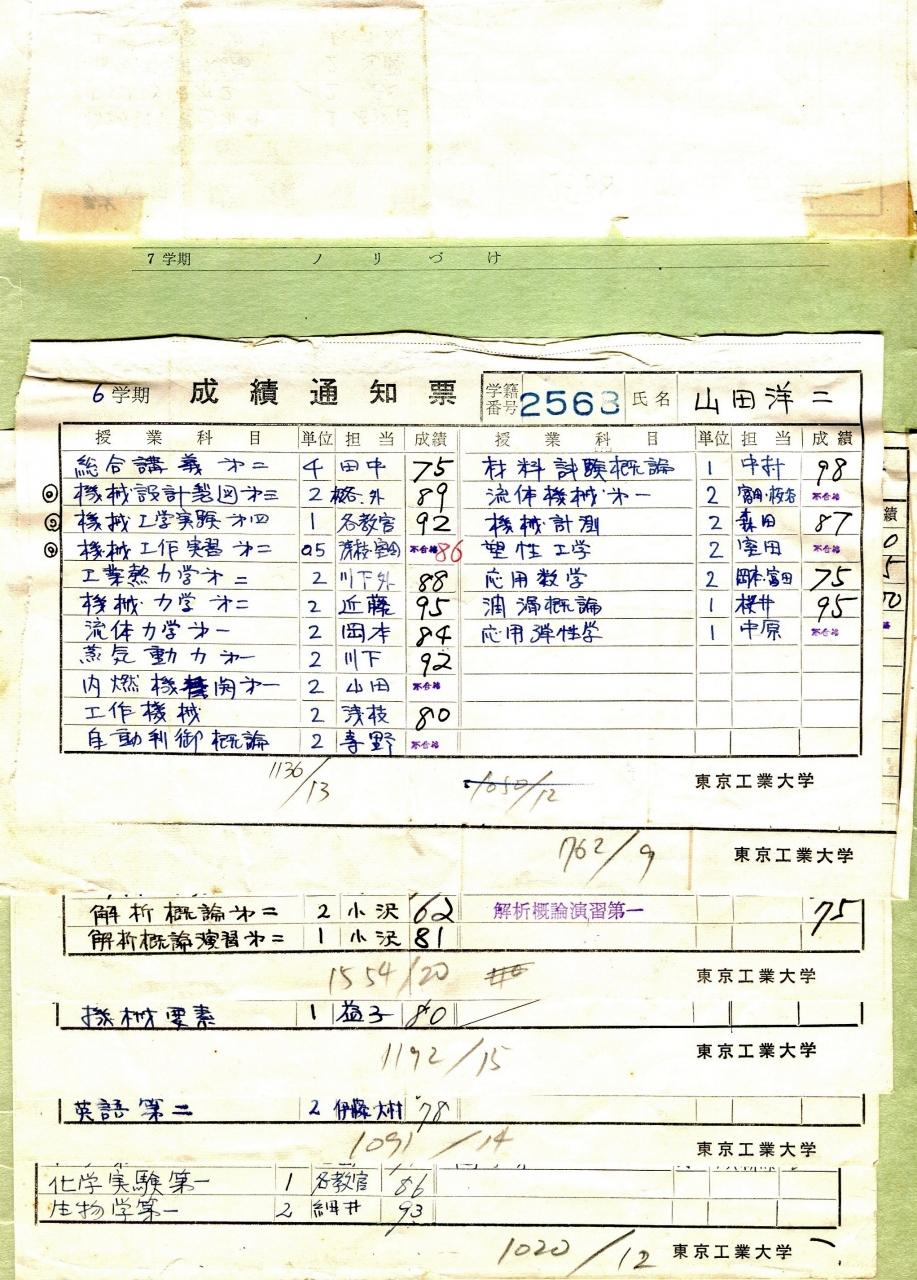 7 学期 ノ リ づ け
6 学期 成 績 通 知 票 学籍番号 2563 氏名 山田洋二
授 業 科 目 単位 担 当 成績 授 業 科 目 単位 担 当 成績
総合講義 第二 4 田中 75 材料試験概論 1 中村 98
◎ 機械設計製図 第三 2 外 89 流体機械 第一 2 不合格
◎ 機械工学実験 第四 1 各教官 92 機械計測 2 森田 87
◎ 機械工作実習 第二 0.5 不合格 86 塑性工学 2 室田 不合格
工業熱力学 第二 2 川下外 88 応用数学 2 岡本・富田 75
機械力学 第二 2 近藤 95 潤滑概論 1 桜井 95
流体力学 第一 2 岡本 84 応用弾性学 1 中原 不合格
蒸気動力 第一 2 川下 92
内燃機関 第一 2 山田 不合格
工作機械 2 浅枝 80
自動制御概論 2 不合格
1136/13 1050/12 東京工業大学
績
0
5
70
762/9 東京工業大学
解析概論 第二 2 小沢 62 解析概論演習第一 75
解析概論演習 第二 1 小沢 81
1554/20 東京工業大学
機械要素 1 益子 80
1192/15 東京工業大学
英語 第二 2 伊藤 大村 78
1091/14 東京工業大学
化学実験第一 1 各教官 86
生物学第一 2 細井 93
1020/12 東京工業大学